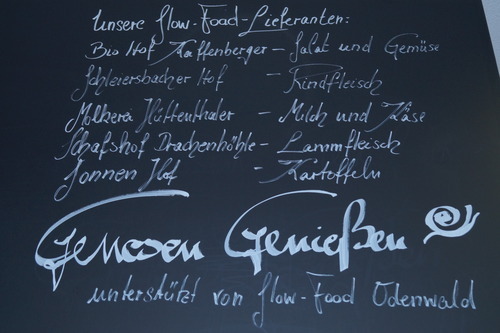 Unsere Slow-Food-Lieferanten:
Bio Hof Kaffenberger - Salat und Gemüse
Schleiersbacher Hof - Rindfleisch
Molkerei Hüttenthaler - Milch und Käse
Schafshof Drachenhöhle - Lammfleisch
Sonnen Hof - Kartoffeln
Genießen
unterstützt von Slow-Food Odenwald